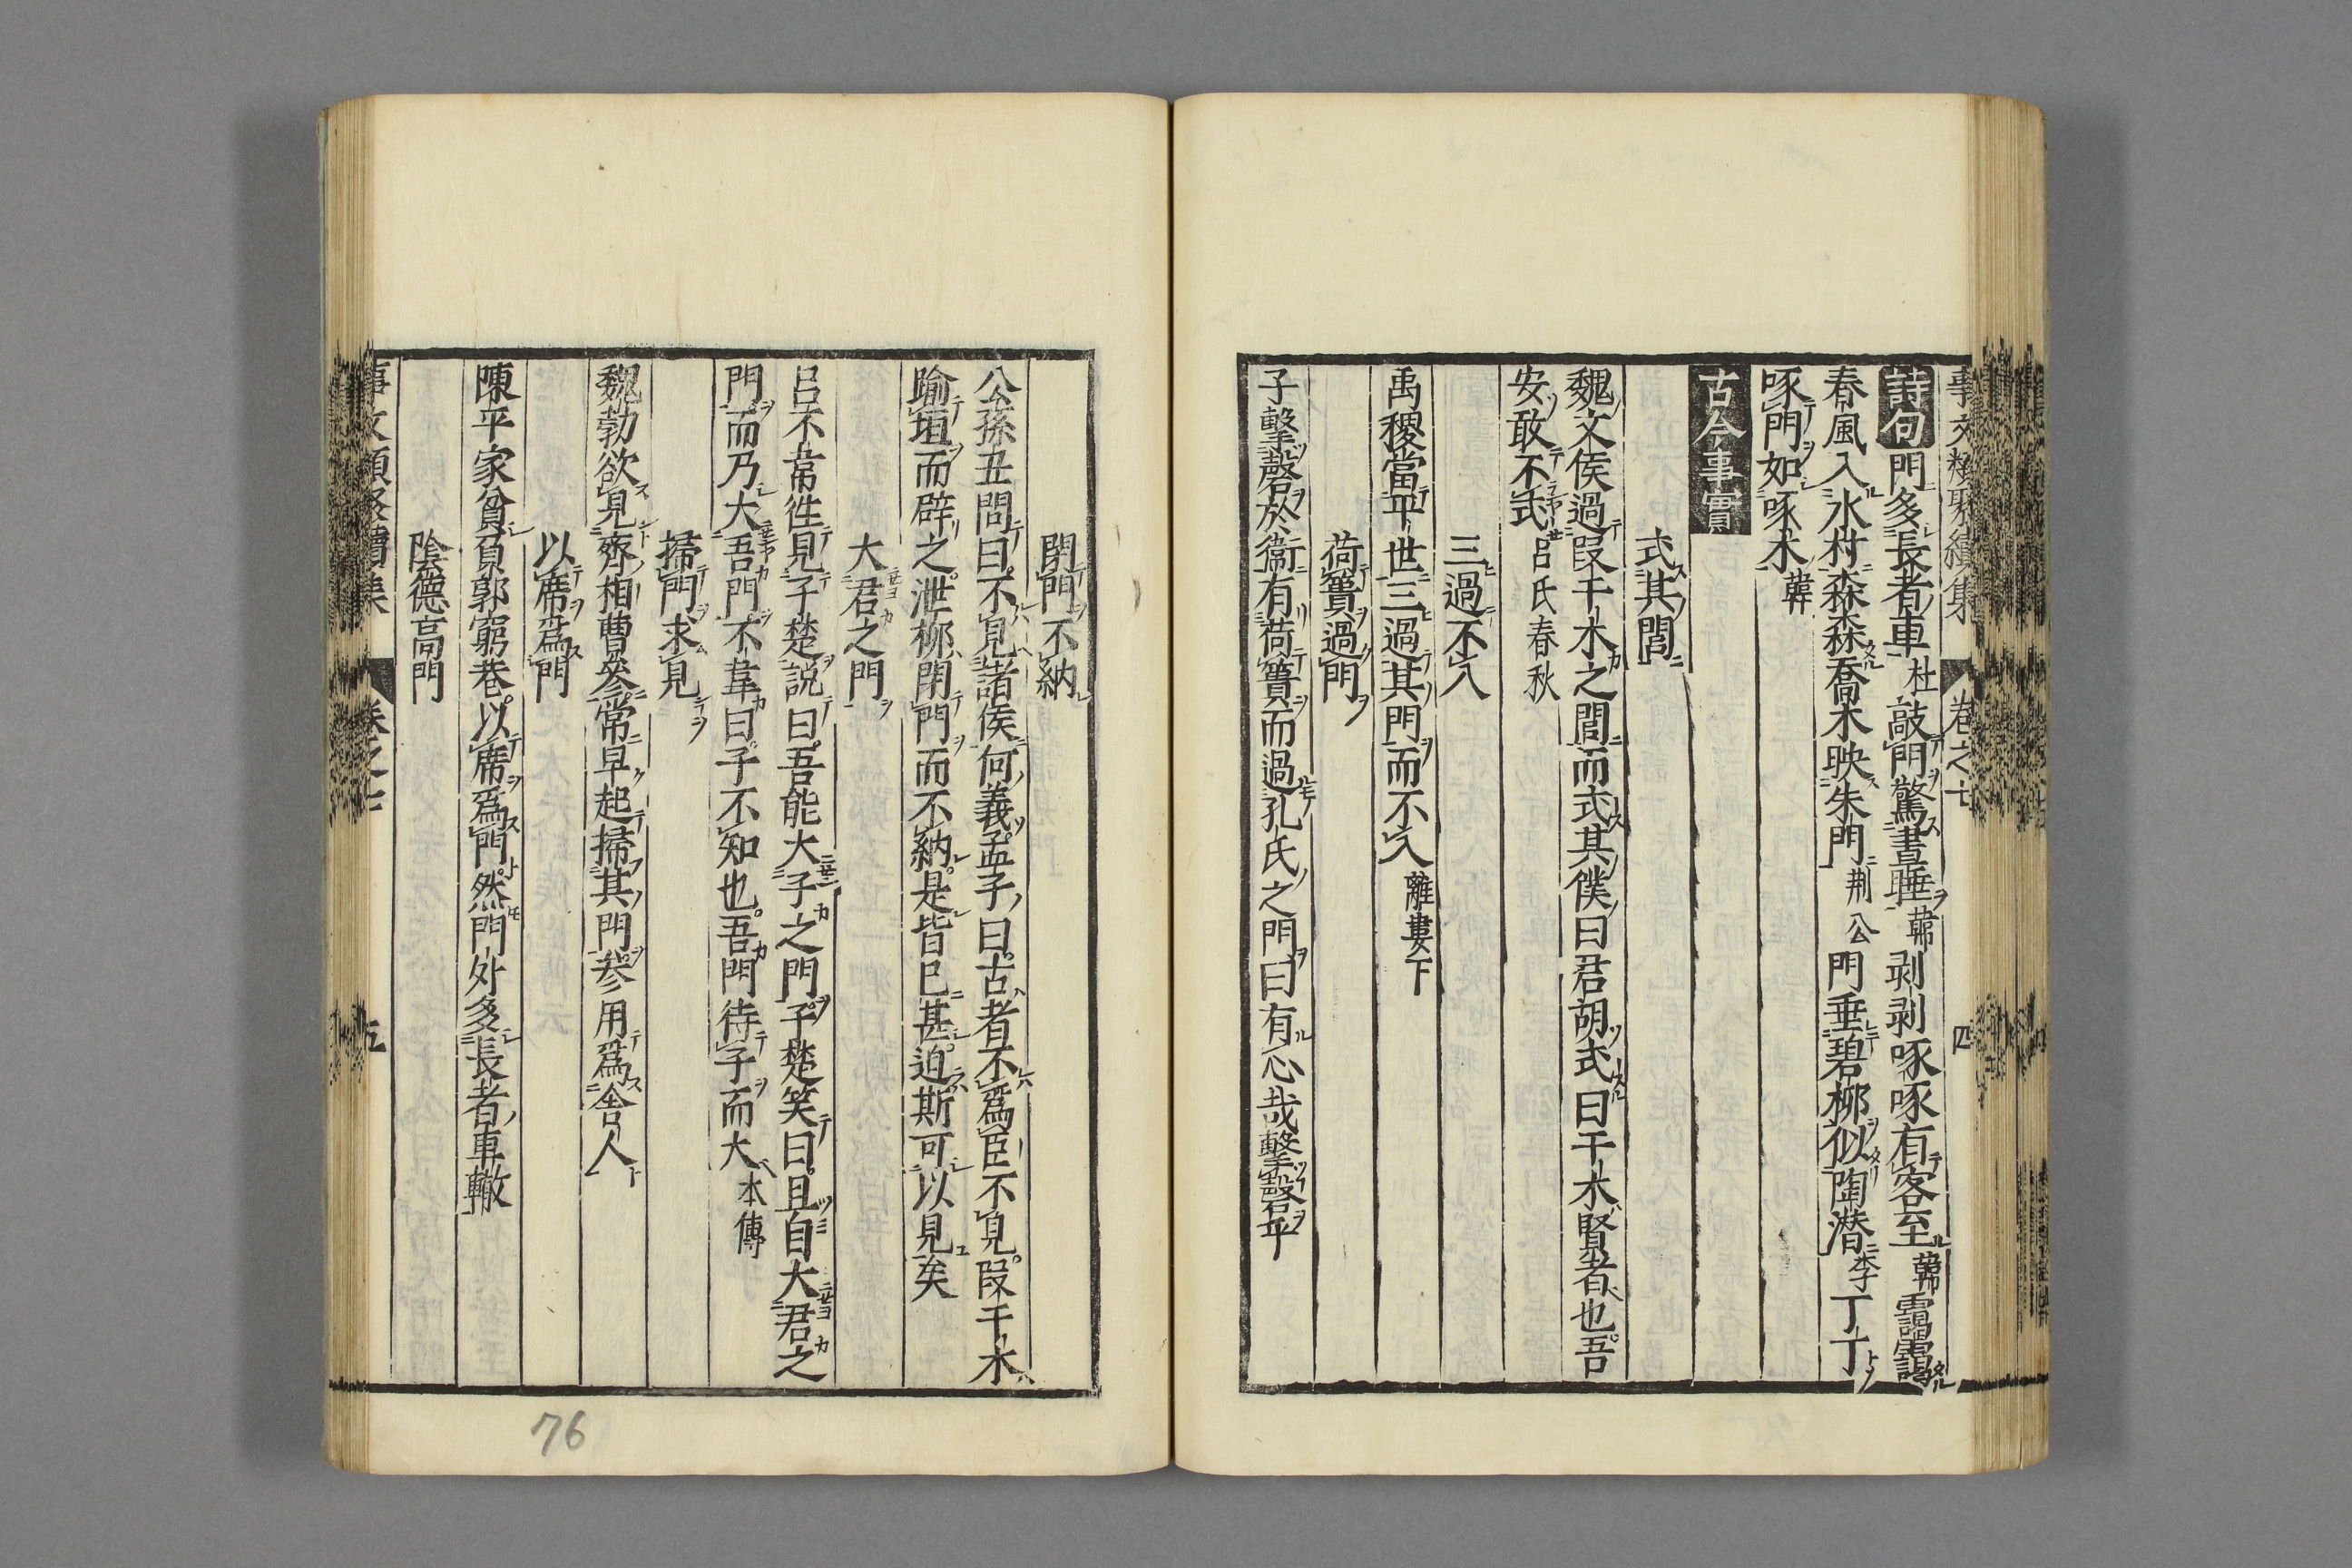 事文類聚續集 卷之七 四
詩句門多長者車杜敲門驚晝睡韓剥剥啄啄有客至韓
春風入水村森森喬木映朱門荆公門垂碧柳似陶潜李丁丁
啄門如啄木韓
古今事實
式其閭
魏文侯過段干木之閭而式其僕曰君胡式曰干木賢者也吾
安敢不式吕氏春秋
三過不入
禹稷當平世三過其門而不入離婁下
荷蕢過門
子擊磬於衞有荷蕢而過孔氏之門曰有心哉擊磬乎
閉門不納
公孫丑問曰不見諸侯何義孟子曰古者不爲臣不見段干木
踰垣而辟之泄柳閉門而不納是皆已甚迫斯可以見矣
大君之門
吕不韋徃見子楚説曰吾能大子之門子楚笑曰且自大君之
門而乃大吾門不韋曰子不知也吾門待子而大本傳
掃門求見
魏勃欲見齊相曹參常早起掃其門參用爲舎人
以席爲門
陳平家貧負郭窮巷以席爲門然門外多長者車轍
陰德高門
事文類聚續集 卷之七 五
76